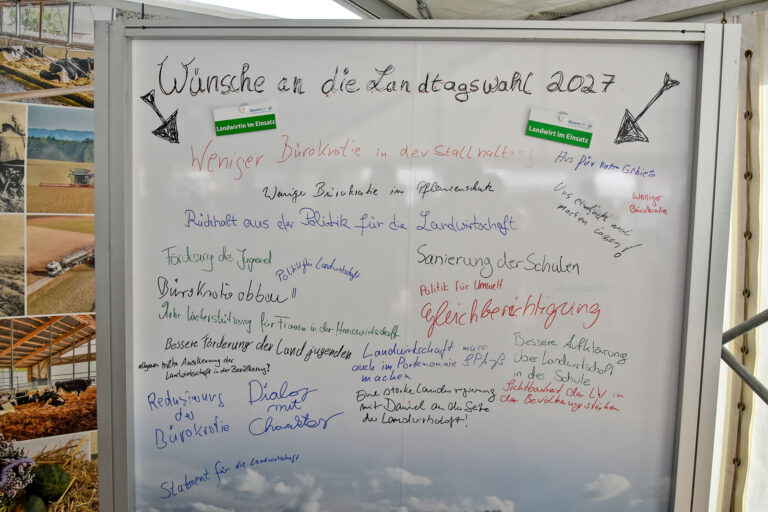 Wünsche an die Landtagswahl 2027
Landwirtin im Einsatz
Landwirt im Einsatz
Weniger Bürokratie in der Stallhaltung
Aus für rote Gebiete
Weniger Bürokratie im Pflanzenschutz
Uns einfach mal
machen lassen!
Weniger
Bürokratie
Rückhalt aus der Politik für die Landwirtschaft
Förderung der Jugend
Politik für Landwirtschaft
Sanierung der Schulen
Bürokratie abbau!!
Politik für Umwelt
Gleichberechtigung
Mehr Unterstützung für Frauen in der Hauswirtschaft
Bessere Förderung der Landjugenden
Landwirtschaft muss
auch im Portemonaie SPAß
machen
Bessere Aufklärung
über Landwirtschaft
in der Schule
allgemein
Anerkennung der
Landwirtschaft in der Bevölkerung!
Reduzierung
der
Bürokratie
Dialog
mit
Charakter
Eine starke Landesregierung
mit Daniel an der Seite
der Landwirtschaft!
Sichtbarkeit der LV in
der Bevölkerung stärken
Statment für die Landwirtschaft